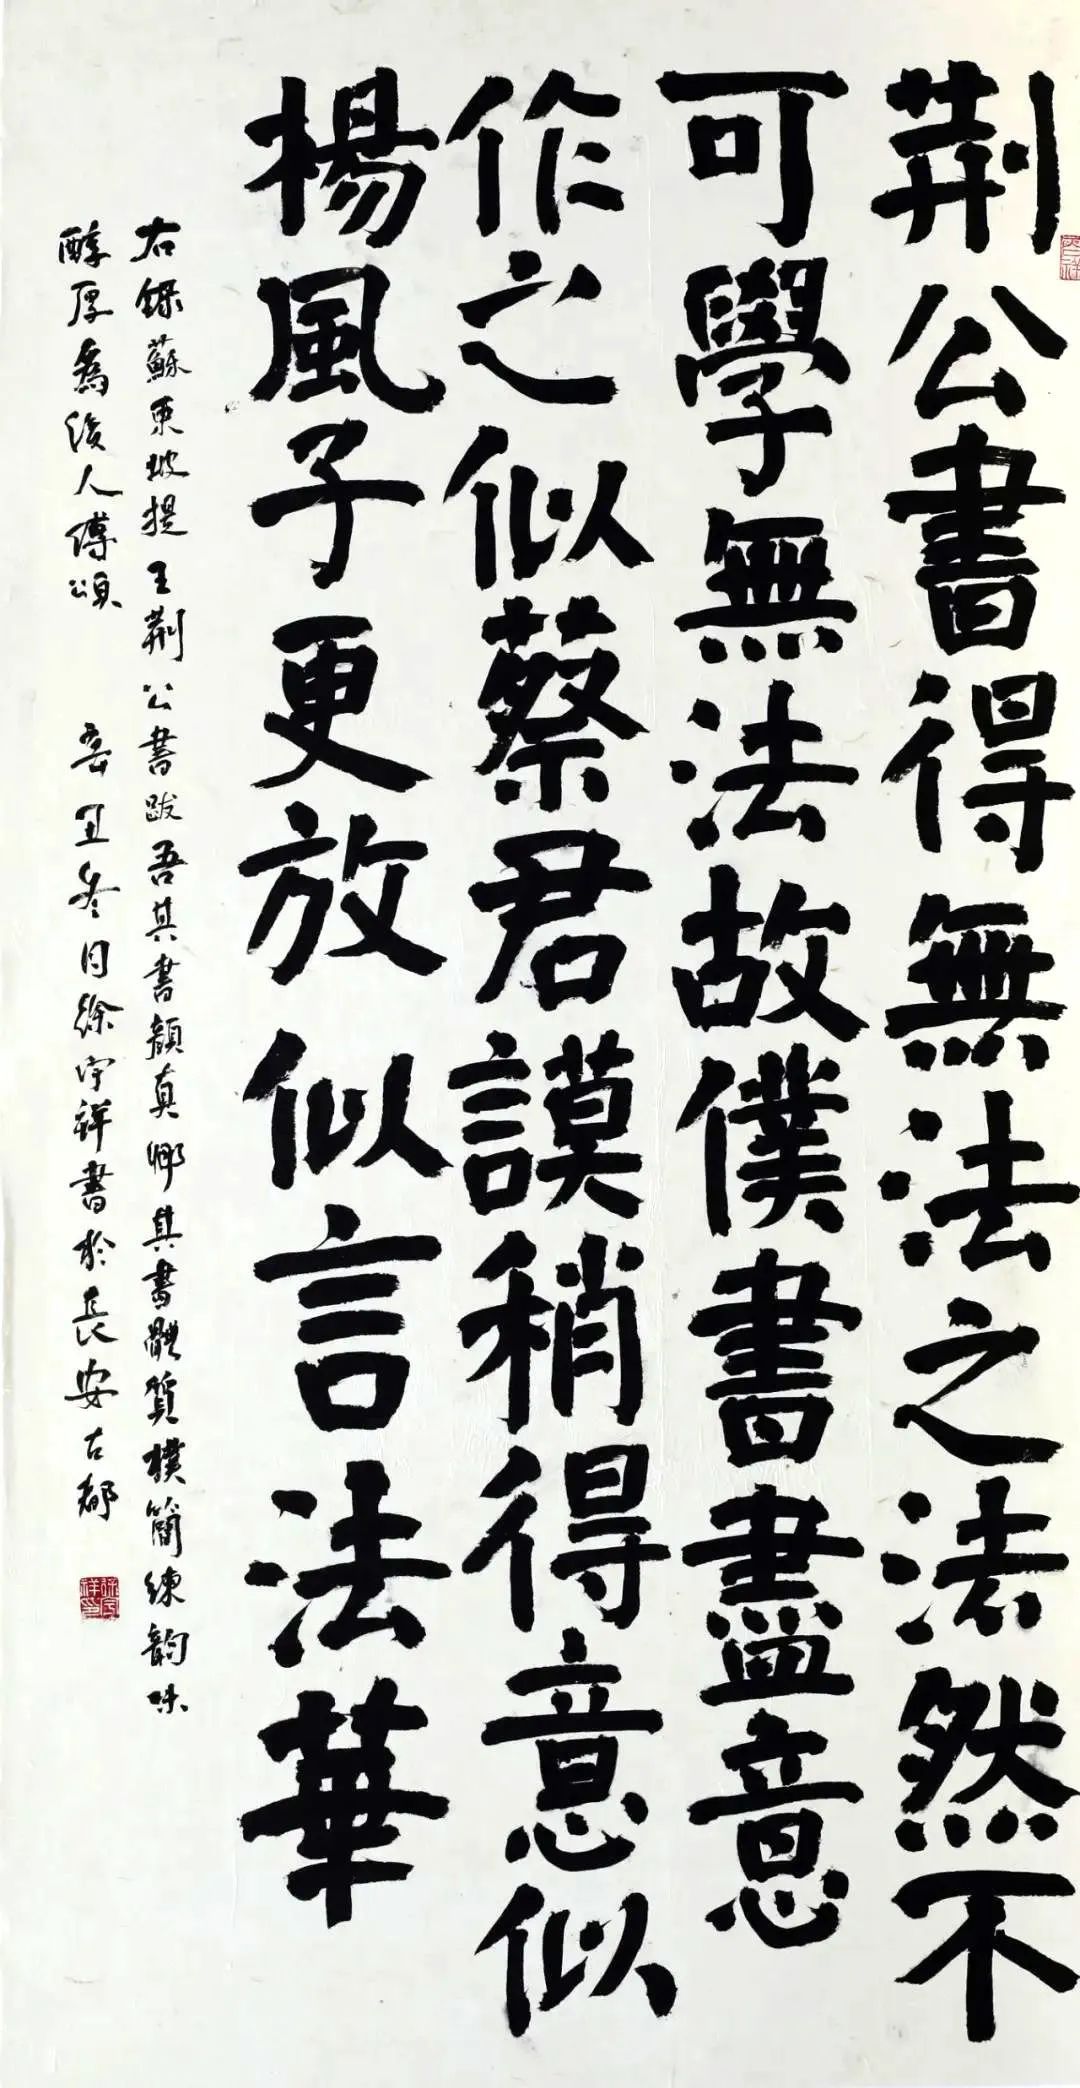 荆公書得無法之法然不
可學無法故僕書盡意
作之似蔡君謨稍得意似
楊風子更放似言法華
右錄蘇東坡提王荆公書跋吾其書顏真卿其書體質樸簡練韵味
醇厚為後人傳頌 辛丑冬月徐宇祥書於長安古都